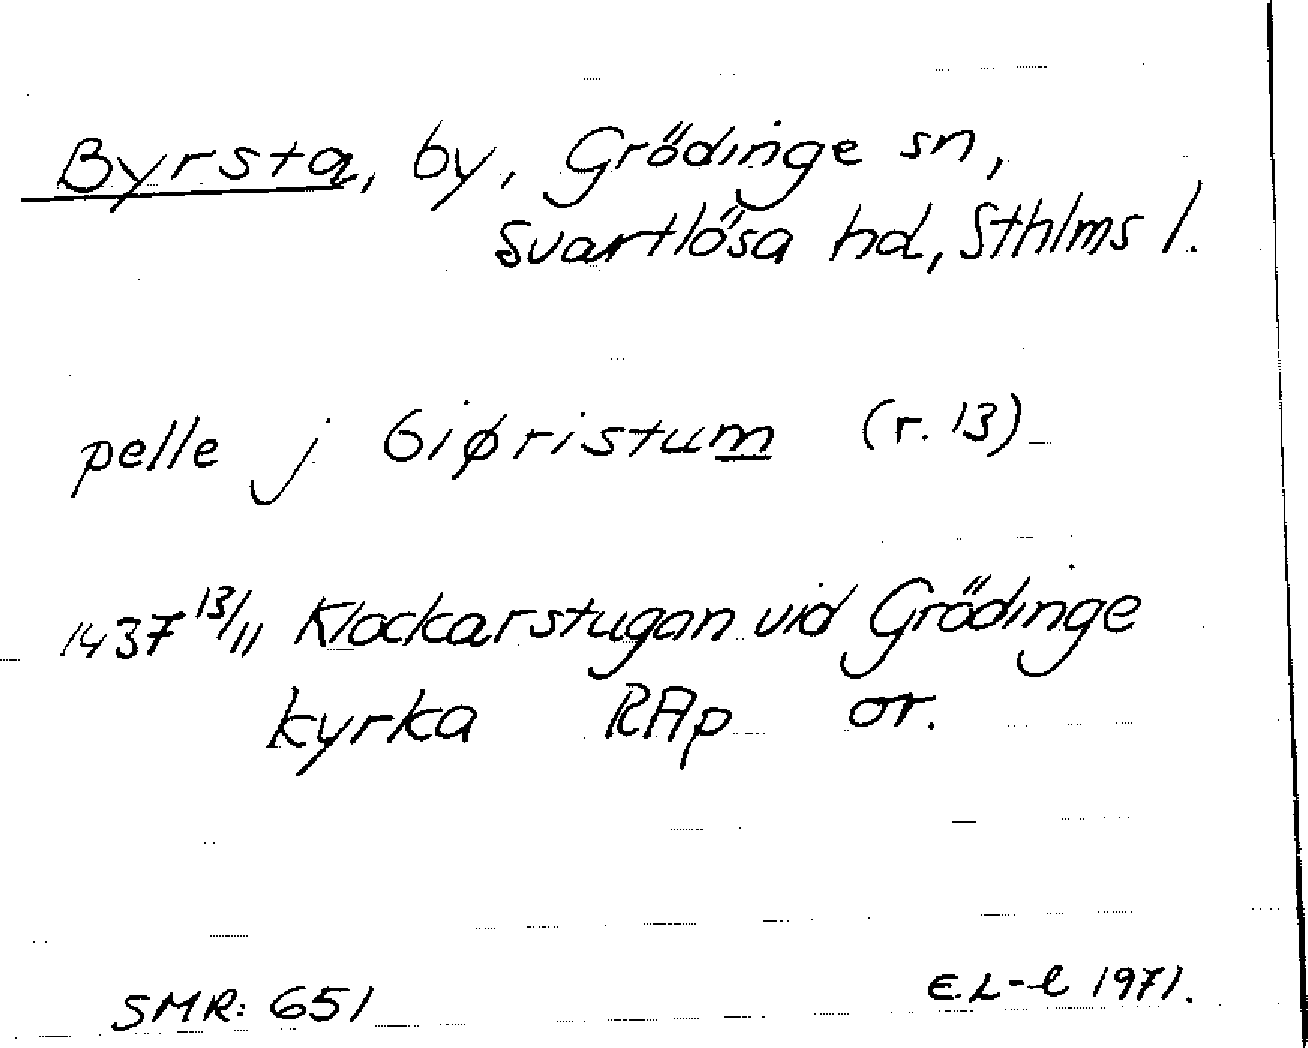 Byrsta, by, Grödinge sn,
Svartlösa hd, Sthlms l.
pelle j biøristum (r. 13)
1437 13/11 Klockarstugan vid Grödinge
kyrka RAp or.
SMR: 651
E.L-l 1971.